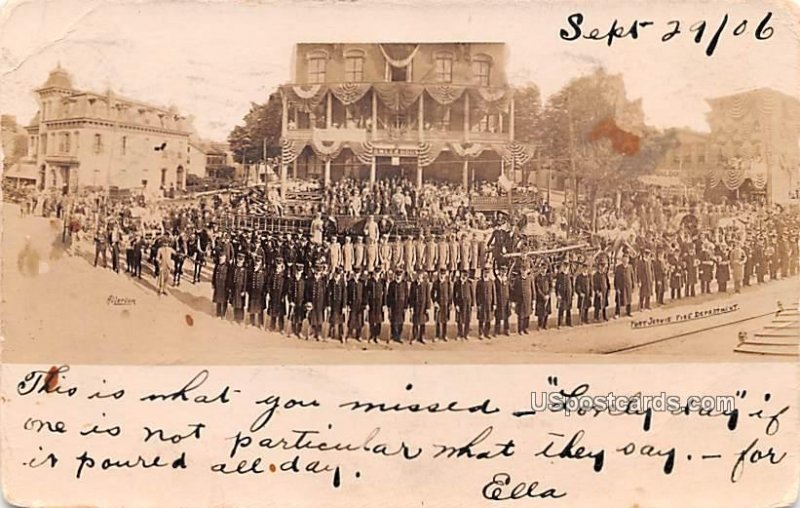 Sept 29/06
Port Jervis Fire Department
This is what you missed - "Lovely day" if
one is not particular what they say. - for
it poured all day.
Ella
USpostcards.com